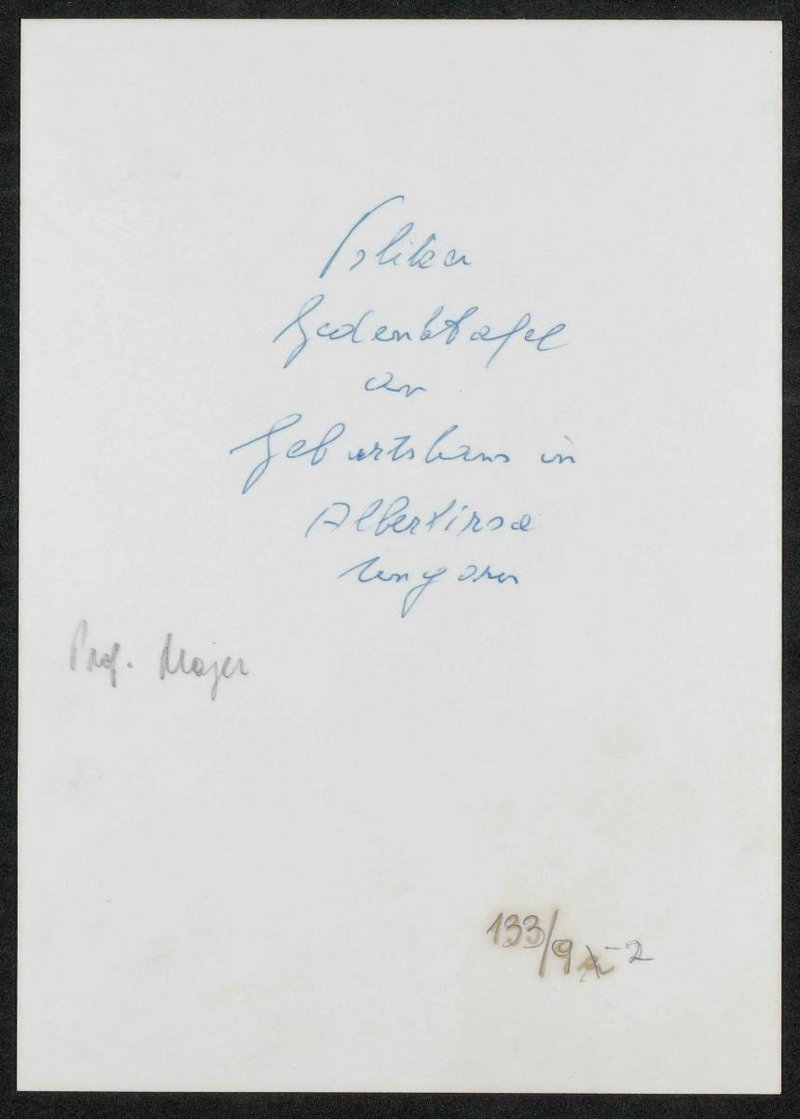 Politzer
Gedenktafel
an
Geburtshaus in
Albertirsa
Ungarn
Prof. Majer
133/9 -2